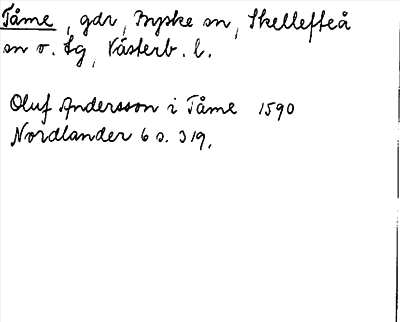 Tåme, gdr, Byske sn, Skellefteå
sn o. tg, Västerb. l.
Oluf Andersson i Tåme 1590
Nordlander 6 s. 319.